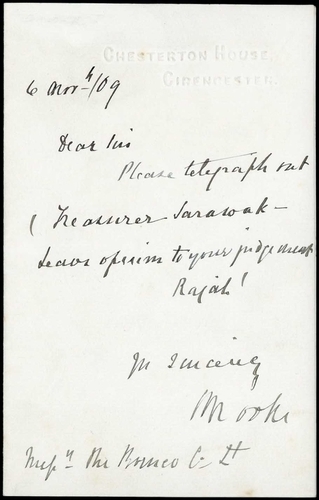 CHESTERTON HOUSE,
CIRENCESTER.
6 Novr/09
Dear Sirs
Please telegraph out
( Treasurer Sarawak -
Leave opium to your judgement
Rajah!
Yrs Sincerely
C Brooke
Messrs The Borneo Co Ld